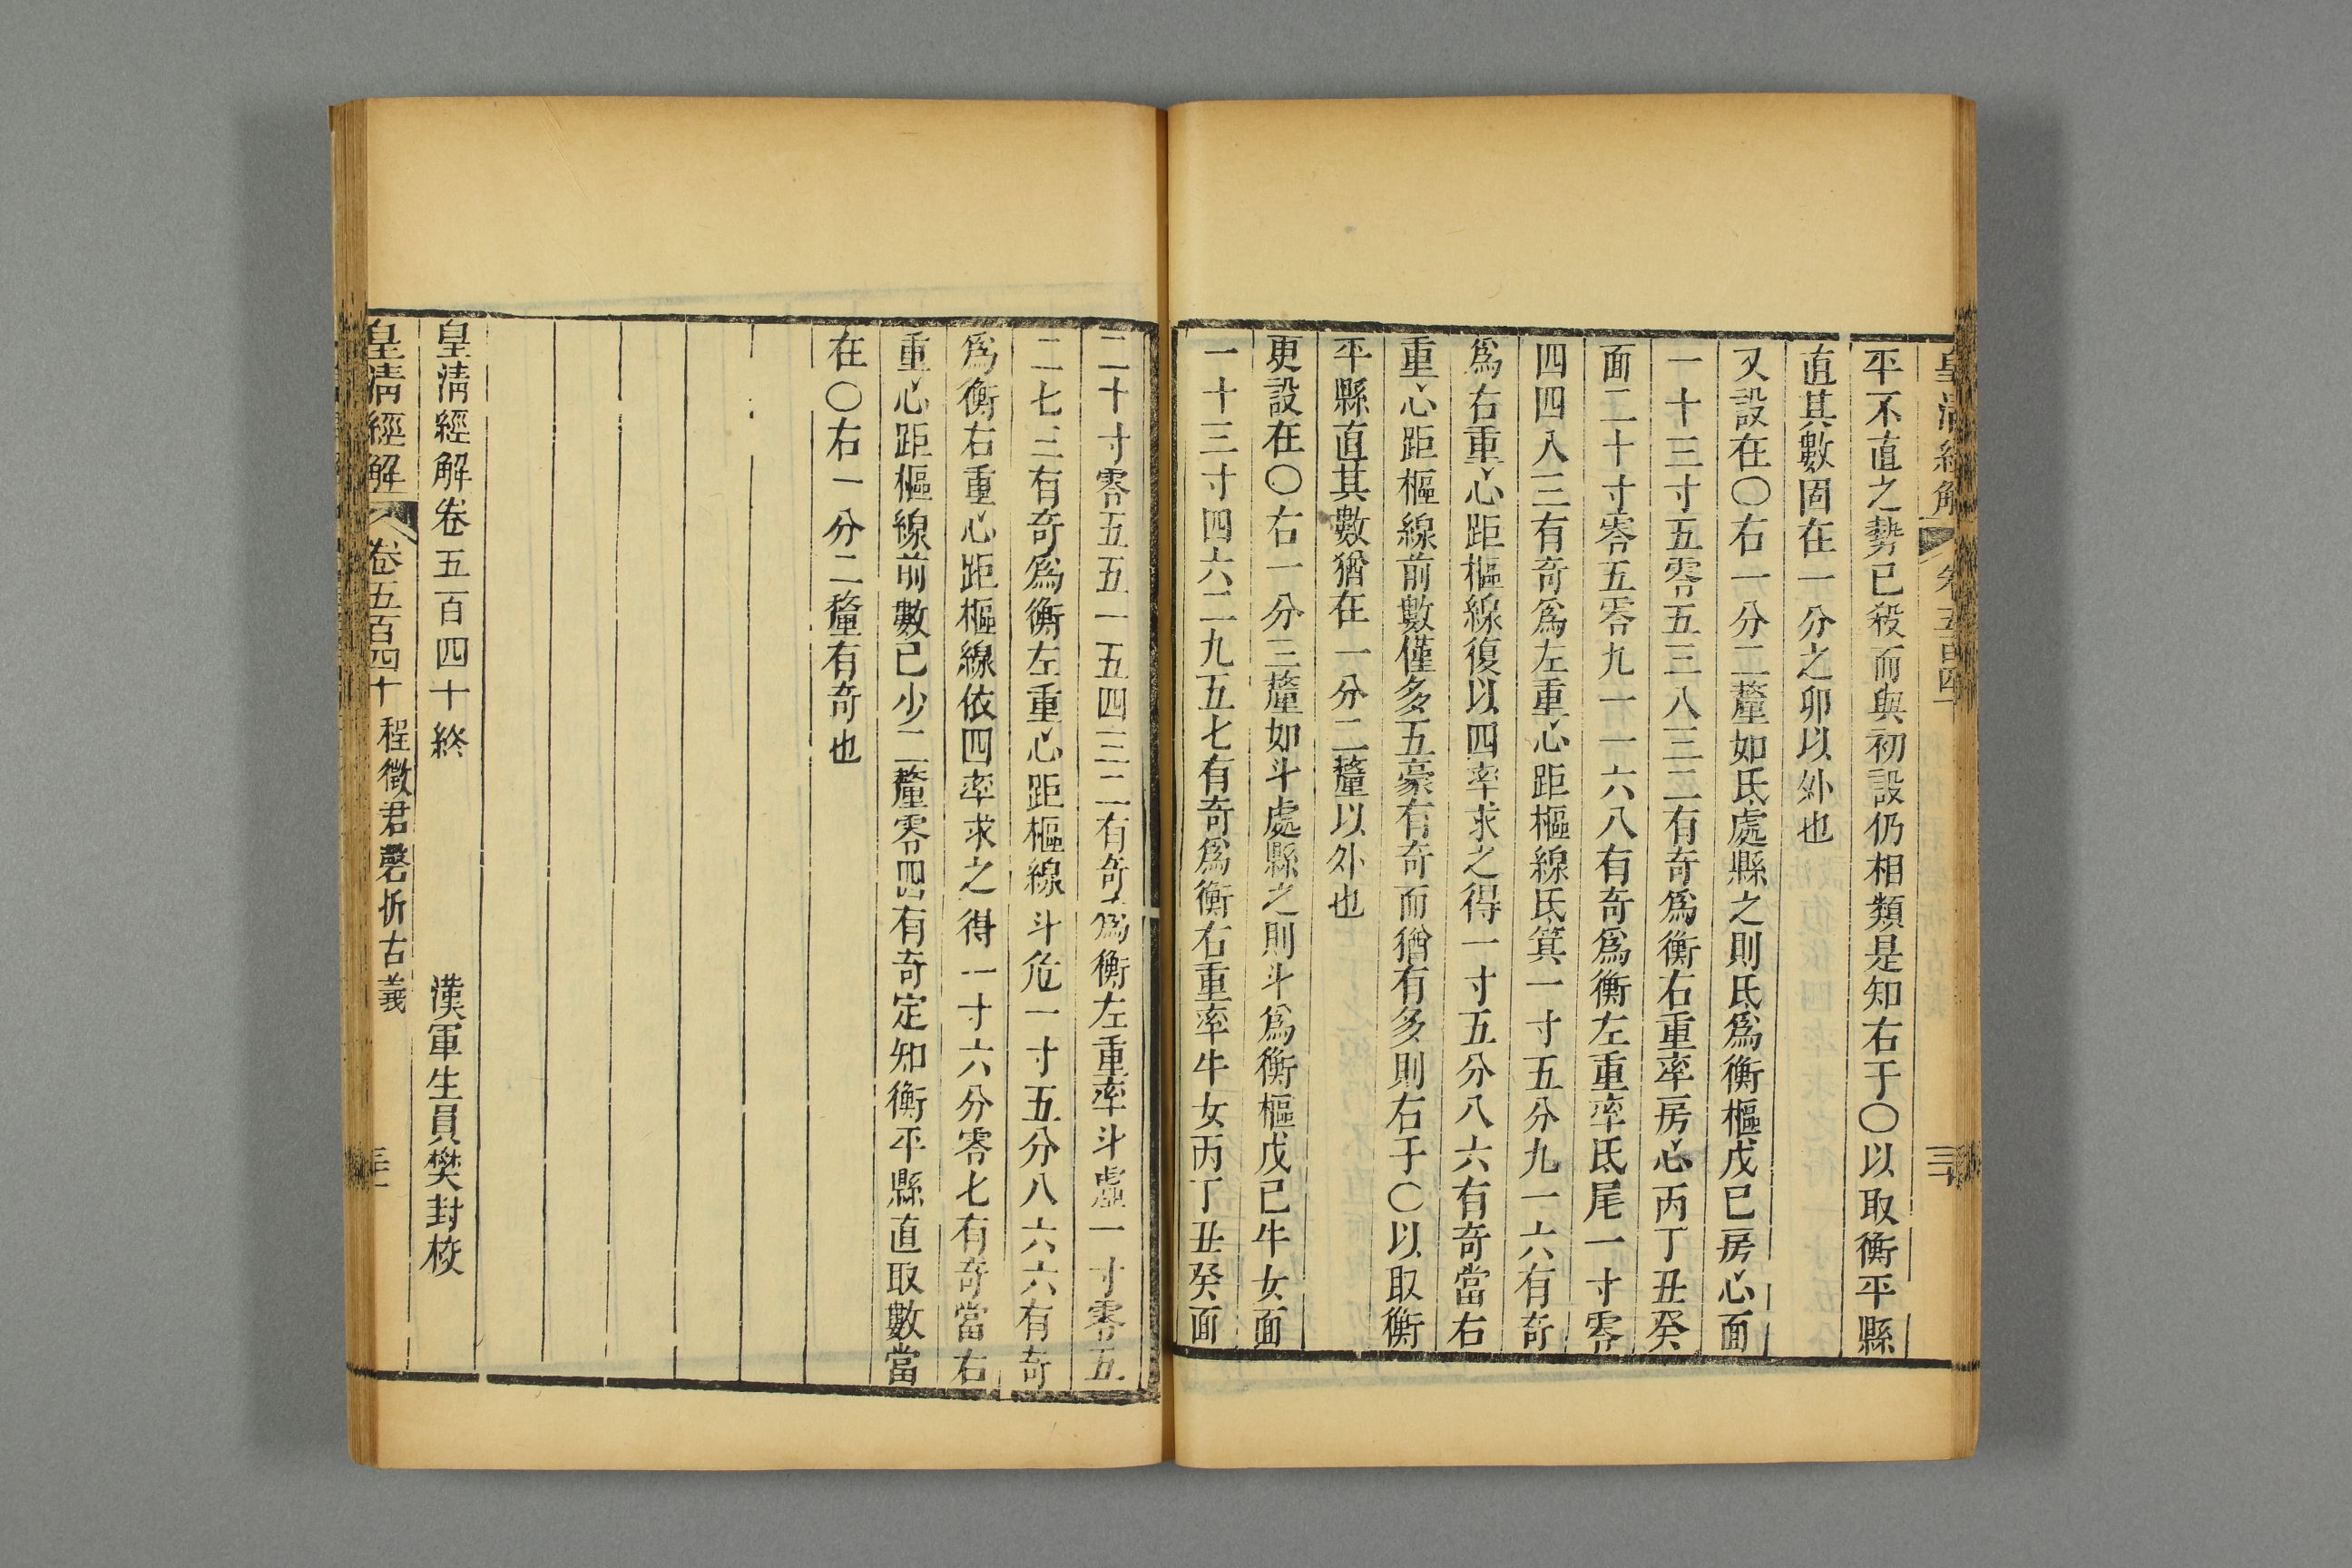 皇清經解 卷五百四十 三十
平不直之勢已殺而與初設仍相類是知右于〇以取衡平縣
直其數固在一分之卯以外也
又設在〇右一分二釐如氐處縣之則氐爲衡樞戊巳房心面
一十三寸五零五三八三二有奇爲衡右重率房心丙丁丑癸
面二十寸零五零九一一六八有奇爲衡左重率氐尾一寸零
四四八三有奇爲左重心距樞線氐箕一寸五分九一六有奇
爲右重心距樞線復以四率求之得一寸五分八六有奇當右
重心距樞線前數僅多五豪有奇而猶有多則右于〇以取衡
平縣直其數猶在一分二釐以外也
更設在〇右一分三釐如斗處縣之則斗爲衡樞戊巳牛女面
一十三寸四六二九五七有奇爲衡右重率牛女丙丁丑癸面
二十寸零五五一五四三二有奇爲衡左重率斗虛一寸零五
二七三有奇爲衡左重心距樞線斗危一寸五分八六六有奇
爲衡右重心距樞線依四率求之得一寸六分零七有奇當右
重心距樞線前數已少二釐零四有奇定知衡平縣直取數當
在〇右一分二釐有奇也
皇清經解卷五百四十終 漢軍生員樊封校
皇清經解 卷五百四十 程徵君磬折古義 三十一